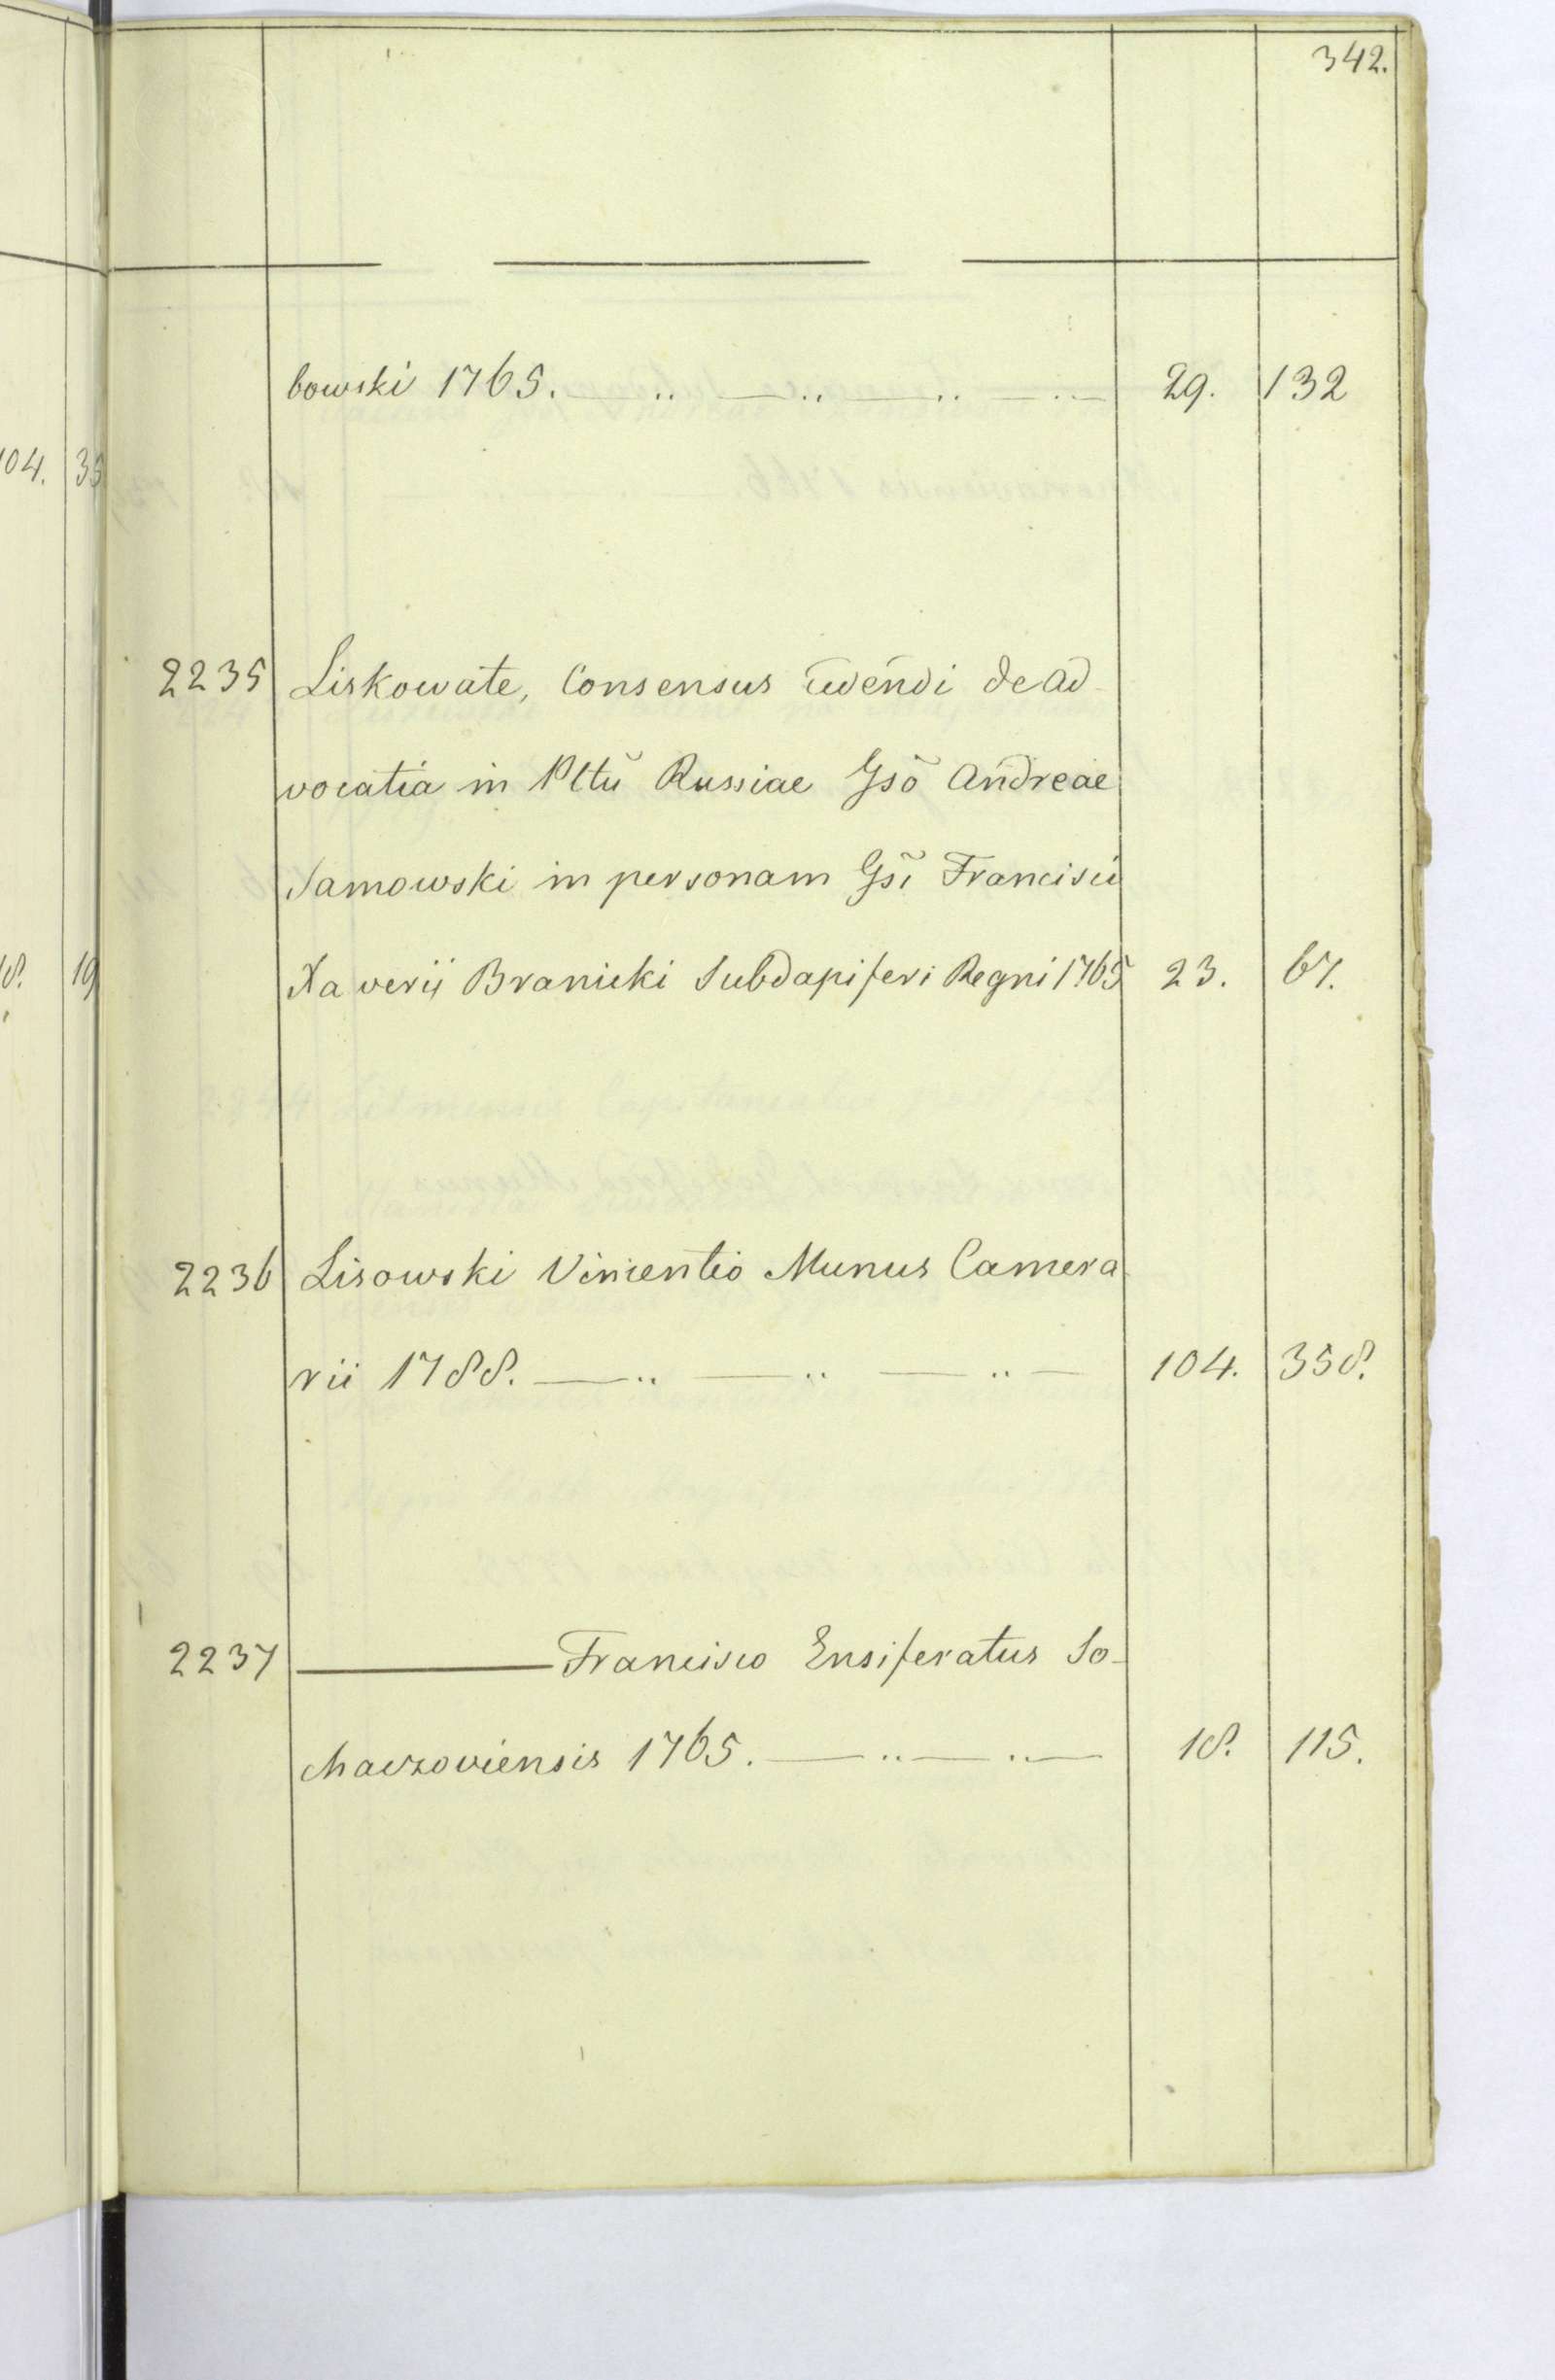 342.
bowski 1765. 29. 132
104. 35
2235 Liskowate, Consensus c̄edēndi de ad-
vocatia in Pltũ Russiae Gsō Andreae
Samowski in personam Gsĩ Francisci
18. 19
Xaverii Branicki Subdapiferi Regni 1765 23. 67.
2236 Lisowski Vincentio Munus Camera
rii 1788. 104. 358.
2237 ——— Francisco Ensiferatus So-
chaczoviensis 1765. 18. 115.